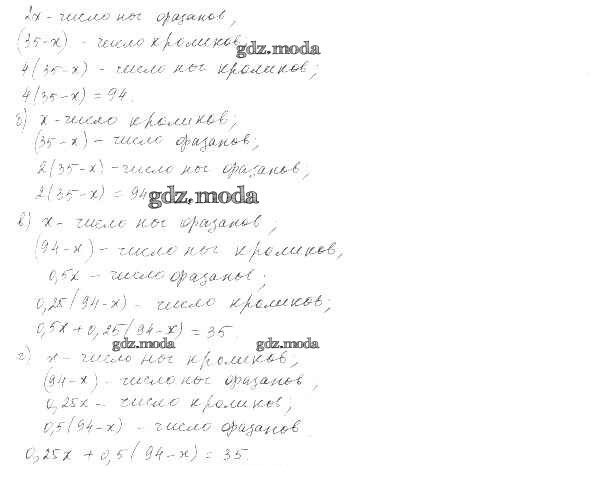 2х - число ног фазанов,
(35-х) - число кроликов,
gdz.moda
4(35-х) - число ног кроликов;
4(35-х) = 94.
б) х - число кроликов;
(35-х) - число фазанов;
2(35-х) - число ног фазанов;
2(35-х) = 94
gdz.moda
в) х - число ног фазанов;
(94-х) - число ног кроликов,
0,5х - число фазанов;
0,25(94-х) - число кроликов;
0,5х + 0,25(94-х) = 35.
gdz.moda gdz.moda
г) х - число ног кроликов,
(94-х) - число ног фазанов,
0,25х - число кроликов;
0,5(94-х) - число фазанов
0,25х + 0,5(94-х) = 35.